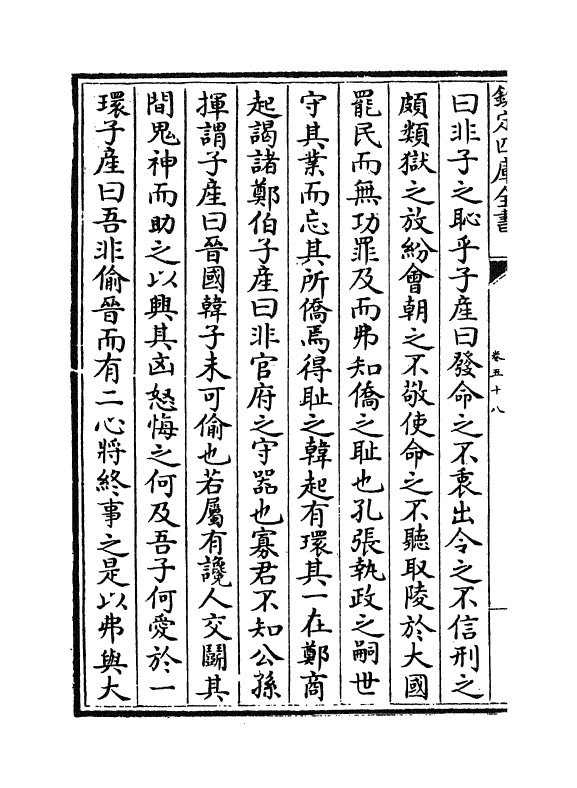 欽定四庫全書
卷五十八
曰非子之恥乎子産曰發命之不衷出令之不信刑之
頗類獄之放紛會朝之不敬使命之不聽取陵於大國
罷民而無功罪及而弗知僑之恥也孔張執政之嗣世
守其業而忘其所僑焉得耻之韓起有環其一在鄭商
起謁諸鄭伯子産曰非官府之守器也寡君不知公孫
揮謂子產曰晉國韓子未可偷也若屬有讒人交鬭其
間鬼神而助之以興其凶怒悔之何及吾子何愛於一
環子産曰吾非偷晉而有二心將終事之是以弗與大